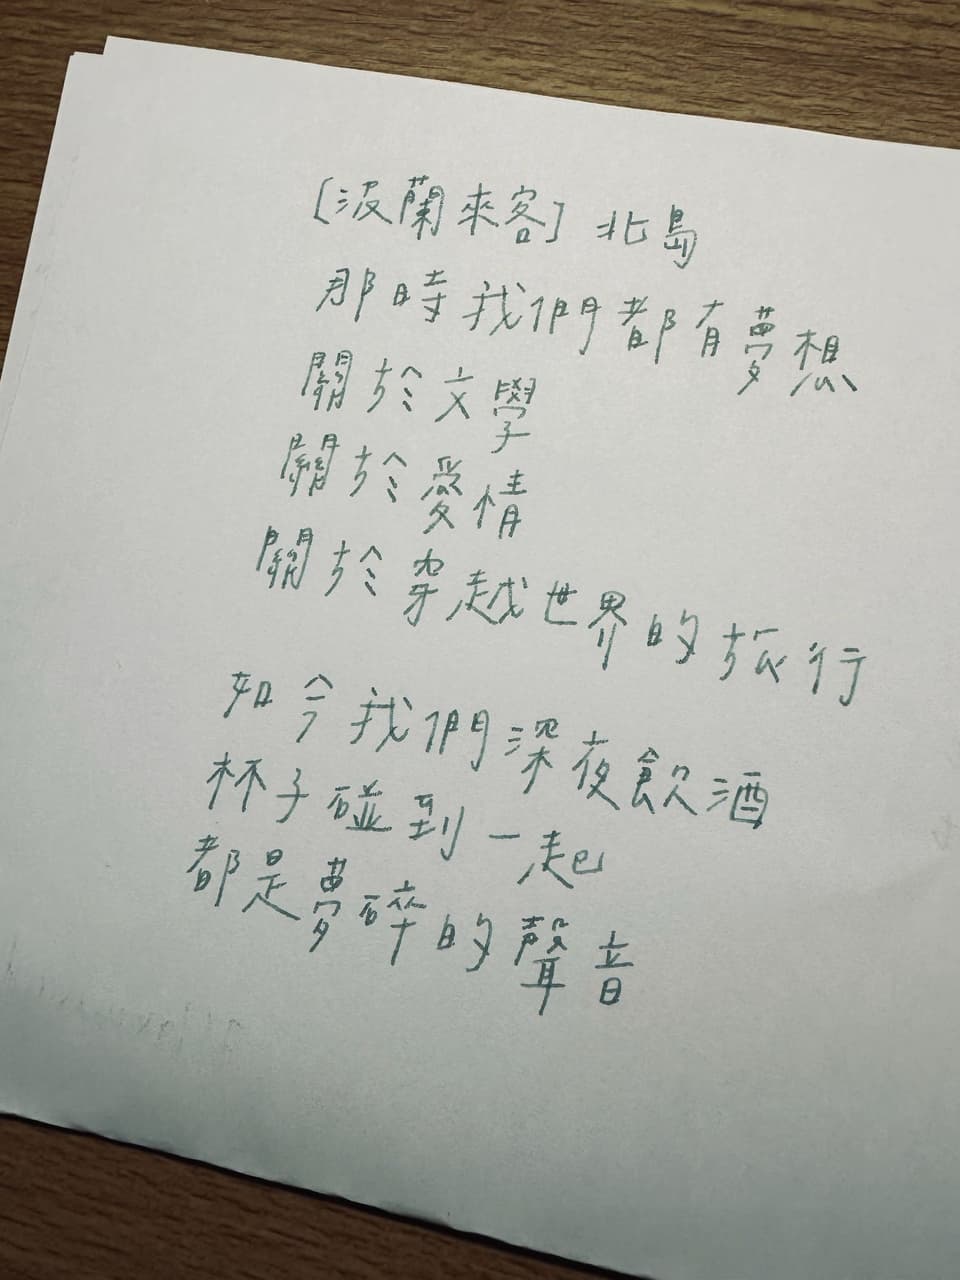 [波蘭來客] 北島
那時我們都有夢想
關於文學
關於愛情
關於穿越世界的旅行
如今我們深夜飲酒
杯子碰到一起
都是夢碎的聲音